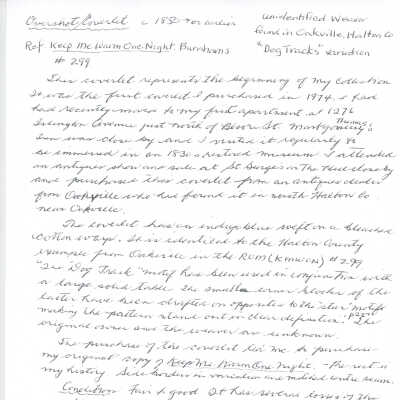 Overshot Coverlet c 1850 or earlier
unidentified Weaver
found in Oakville, Halton Co
"Dog Tracks" variation
Ref. Keep Me Warm One Night. Burnhams
# 299
This coverlet represents the beginning of my collection
It was the first coverlet I purchased in 1974. I had
had recently moved to my first apartment at 1276
Islington Avenue just north of Bloor St. Montgomery's
Inn was close by and I visited it regularly to
be immersed in an 1830's restored museum. I attended
an antiques show and sale at St Georges on The Hill close by
and purchased this coverlet from an antiques dealer
from Oakville who had found it in south Halton Co
near Oakville.
The coverlet has an indigo blue weft on a bleached
cotton warp. It is identical to the Halton County
example from Oakville in the ROM (KMWON) # 299
"The Dog Track" motif has been used in conjunction with
a large solid table. The small inner blocks of the
latter have been drafted on opposites to the "star" motifs
making the pattern stand out in clear definition. p 201 The
original owner and the weaver are unknown.
The purchase of this coverlet led me to purchase
my original copy of Keep Me Warm One Night. The rest is
my history. Side borders in variation and matched centre seam.
Condition Fair to good. It has several losses of the